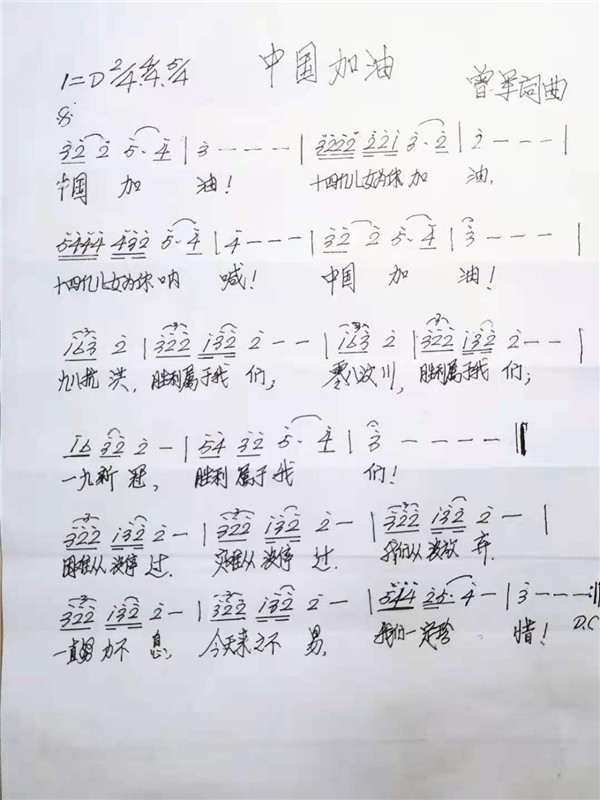 中国加油
1=D 2/4 4/4 5/4
曾军词曲
3 2 2 5· 4 | 3 - - - | 3 2 2 2 2 2 1 3· 2 | 2 - - - |
中国 加 油! 十四亿儿女为你加 油,
5 4 4 4 4 3 2 5· 4 | 4 - - - | 3 2 2 5· 4 | 3 - - - |
十四亿儿女为你呐 喊! 中国 加 油!
1 6 3 2 | 3 2 2 1 3 2 2 - - | 1 6 3 2 | 3 2 2 1 3 2 2 - - |
九八抗 洪, 胜利属于我 们; 零八汶川, 胜利属于我 们;
1 6 3 2 2 - | 5 4 3 2 5· 4 | 3 - - - -
一九新 冠, 胜利 属于 我 们!
3 2 2 1 3 2 2 - | 3 2 2 1 3 2 2 - | 3 2 2 1 3 2 2 - |
困难从 没停 过. 灾难从 没停 过. 我们从 没放 弃.
3 2 2 1 3 2 2 - | 3 2 2 1 3 2 2 - | 5 4 4 2 5· 4 - | 3 - - - :||
一直努 力不 息; 今天来 之不 易, 我们一定珍 惜! D.C